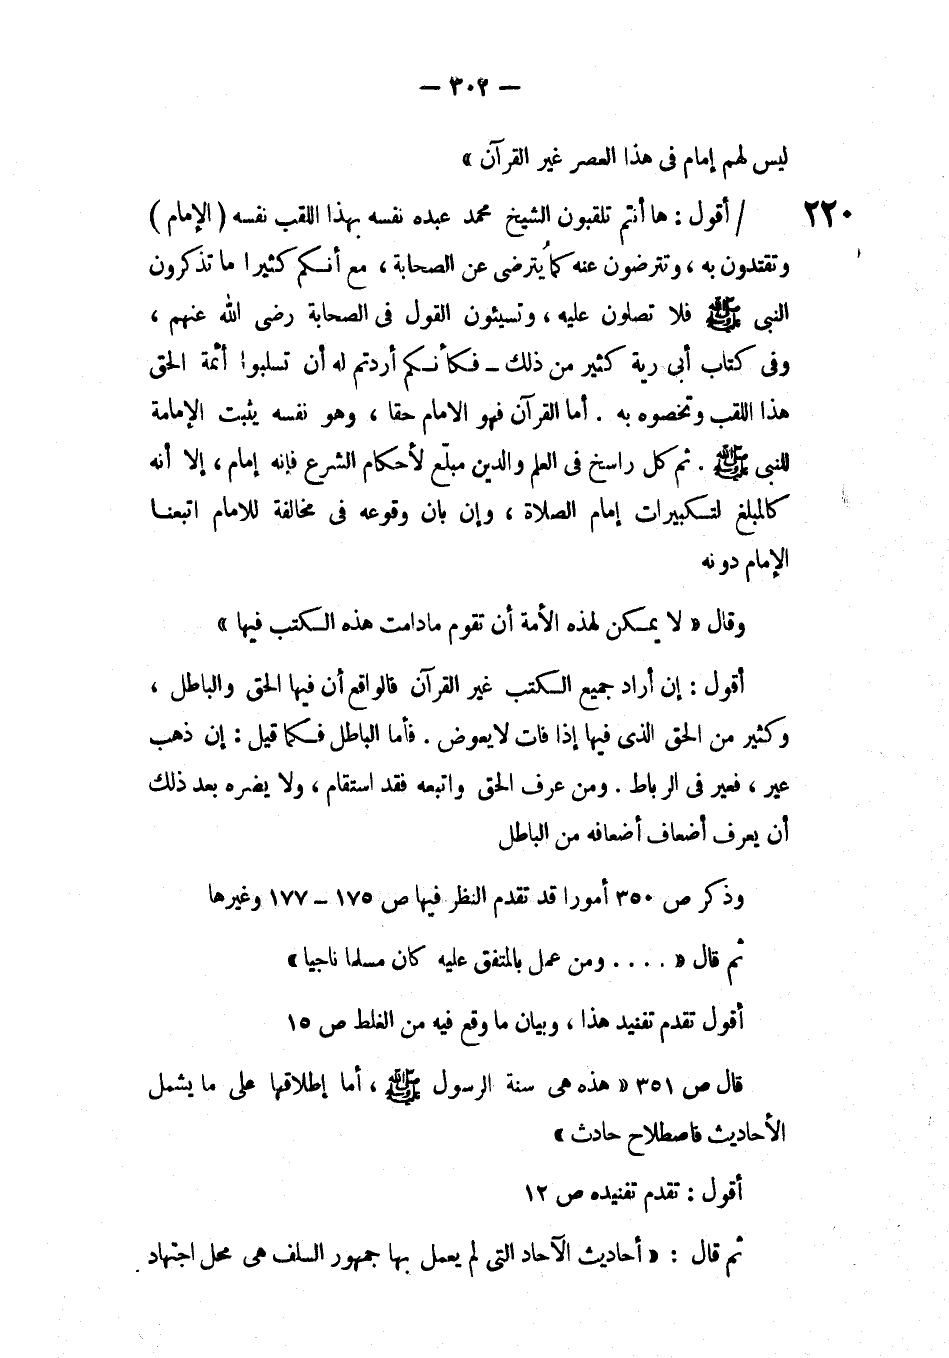 — ٣٠٢ —
ليس لهم إمام فى هذا العصر غير القرآن »
٢٢٠ / أقول : ها أنتم تلقبون الشيخ محمد عبده نفسه بهذا اللقب نفسه ( الإمام )
وتقتدون به ، وتترضون عنه كما يُترضى عن الصحابة ، مع أنكم كثيرا ما تذكرون
النبى ﷺ فلا تصلون عليه ، وتسيئون القول فى الصحابة رضى الله عنهم ،
وفى كتاب أبى رية كثير من ذلك ــ فكأنكم أردتم له أن تسلبوا أئمة الحق
هذا اللقب وتخصوه به . أما القرآن فهو الامام حقا ، وهو نفسه يثبت الإمامة
للنبى ﷺ . ثم كل راسخ فى العلم والدين مبلّغ لأحكام الشرع فإنه إمام ، إلا أنه
كالمبلغ لتكبيرات إمام الصلاة ، وإن بان وقوعه فى مخالفة للامام اتبعنا
الإمام دونه
وقال « لا يمكن لهذه الأمة أن تقوم مادامت هذه الكتب فيها »
أقول : إن أراد جميع الكتب غير القرآن فالواقع أن فيها الحق والباطل ،
وكثير من الحق الذى فيها إذا فات لا يعوض . فأما الباطل فكما قيل : إن ذهب
عير ، فعير فى الرباط . ومن عرف الحق واتبعه فقد استقام ، ولا يضره بعد ذلك
أن يعرف أضعاف أضعافه من الباطل
وذكر ص ٣٥٠ أمورا قد تقدم النظر فيها ص ١٧٥ ــ ١٧٧ وغيرها
ثم قال « . . . . ومن عمل بالمتفق عليه كان مسلما ناجيا »
أقول تقدم تفنيد هذا ، وبيان ما وقع فيه من الغلط ص ١٥
قال ص ٣٥١ « هذه هى سنة الرسول ﷺ ، أما إطلاقها على ما يشمل
الأحاديث فاصطلاح حادث »
أقول : تقدم تفنيده ص ١٢
ثم قال : « أحاديث الآحاد التى لم يعمل بها جمهور السلف هى محل اجتهاد